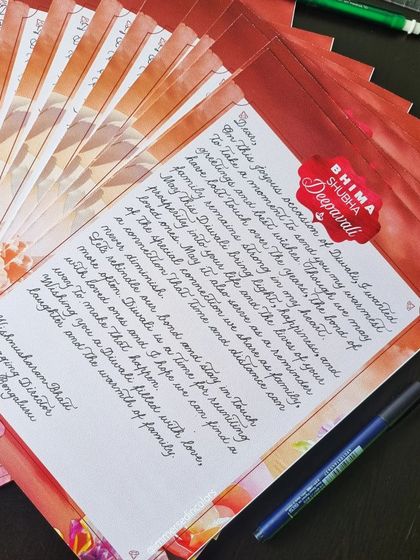 Dear,
On this joyous occasion of Diwali, I wanted
To take a moment to send you my warmest
greetings and best wishes. Though we may
have lost touch over the years, the bond of
family remains strong in my heart.
May this Diwali bring light, happiness, and
prosperity into your life and the lives of your
loved ones. May it also serve as a reminder
of the special connection we share as family,
a connection that time and distance can
never diminish.
Let's rekindle our bond and stay in touch
more often. Diwali is a time for reuniting
with loved ones and I hope we can find a
way to make that happen.
Wishing you a Diwali filled with love,
laughter, and the warmth of family.
Bhatt
Director
Bengaluru
BHIMA
SHUBHA
Deepavali
@immersedincolors